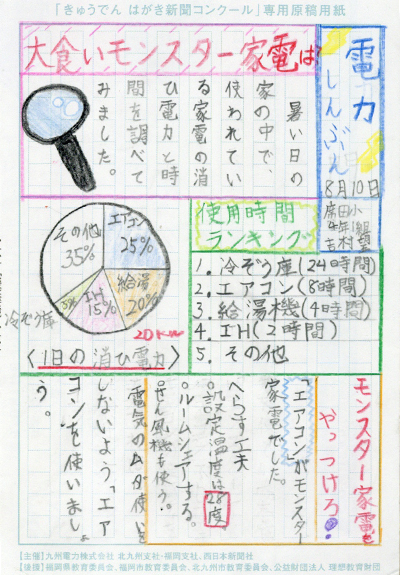 「きゅうでん はがき新聞コンクール」専用原稿用紙
電力
しんぶん
8月10日
席田小
4年1組
吉村
大食いモンスター家電は
暑い日の
家の中で、
使われてい
る家電の消
ひ電力と時
間を調べて
みました。
その他
35%
エアコン
25%
給湯
20%
IH
15%
5%
冷ぞう庫
20kw
〈1日の消ひ電力〉
使用時間
ランキング
1.冷ぞう庫(24時間)
2.エアコン(8時間)
3.給湯機(4時間)
4.IH(2時間)
5.その他
モンスター家電を
やっつけろ!
「エアコン」がモンスター
家電でした。
へらす工夫
○設定温度は28度
○ルームシェアする。
○せん風機も使う。
電気のムダ使いを
しないよう「エア
コン」を使いましょ
う。
【主催】九州電力株式会社 北九州支社・福岡支社、西日本新聞社
【後援】福岡県教育委員会、福岡市教育委員会、北九州市教育委員会、公益財団法人 理想教育財団